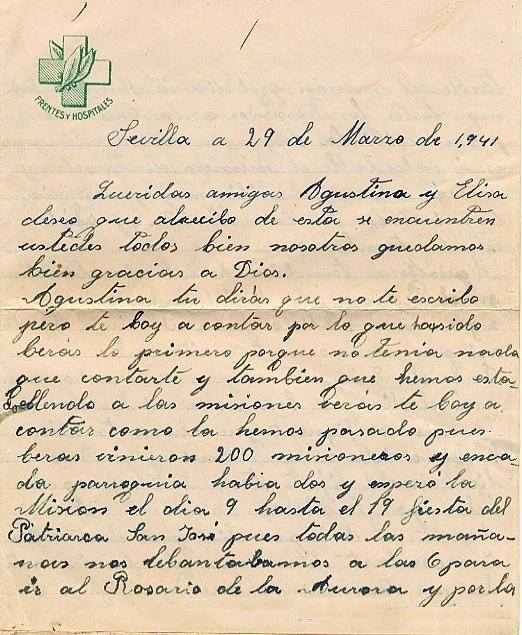 FRENTES Y HOSPITALES
Sevilla a 29 de Marzo de 1,941
Queridas amigas Agustina y Elisa
deseo que alrecibo de esta se encuentren
ustedes todos bien nosotros quedamos
bien gracias a Dios.
Agustina tu dirás que no te escribo
pero te boy a contar por lo que hasido
berás lo primero porque no tenia nada
que contarte y tambien que hemos esta-
do llendo a las misiones berás te boy a
contar como la hemos pasado pues
beras vinieron 200 misioneros y enca-
da parroquia habia dos y esperó la
Mision el dia 9 hasta el 19 fiesta del
Patriarca San José pues todas las maña-
nas nos lebantabamos a las 6 para
ir al Rosario de la Aurora y por la